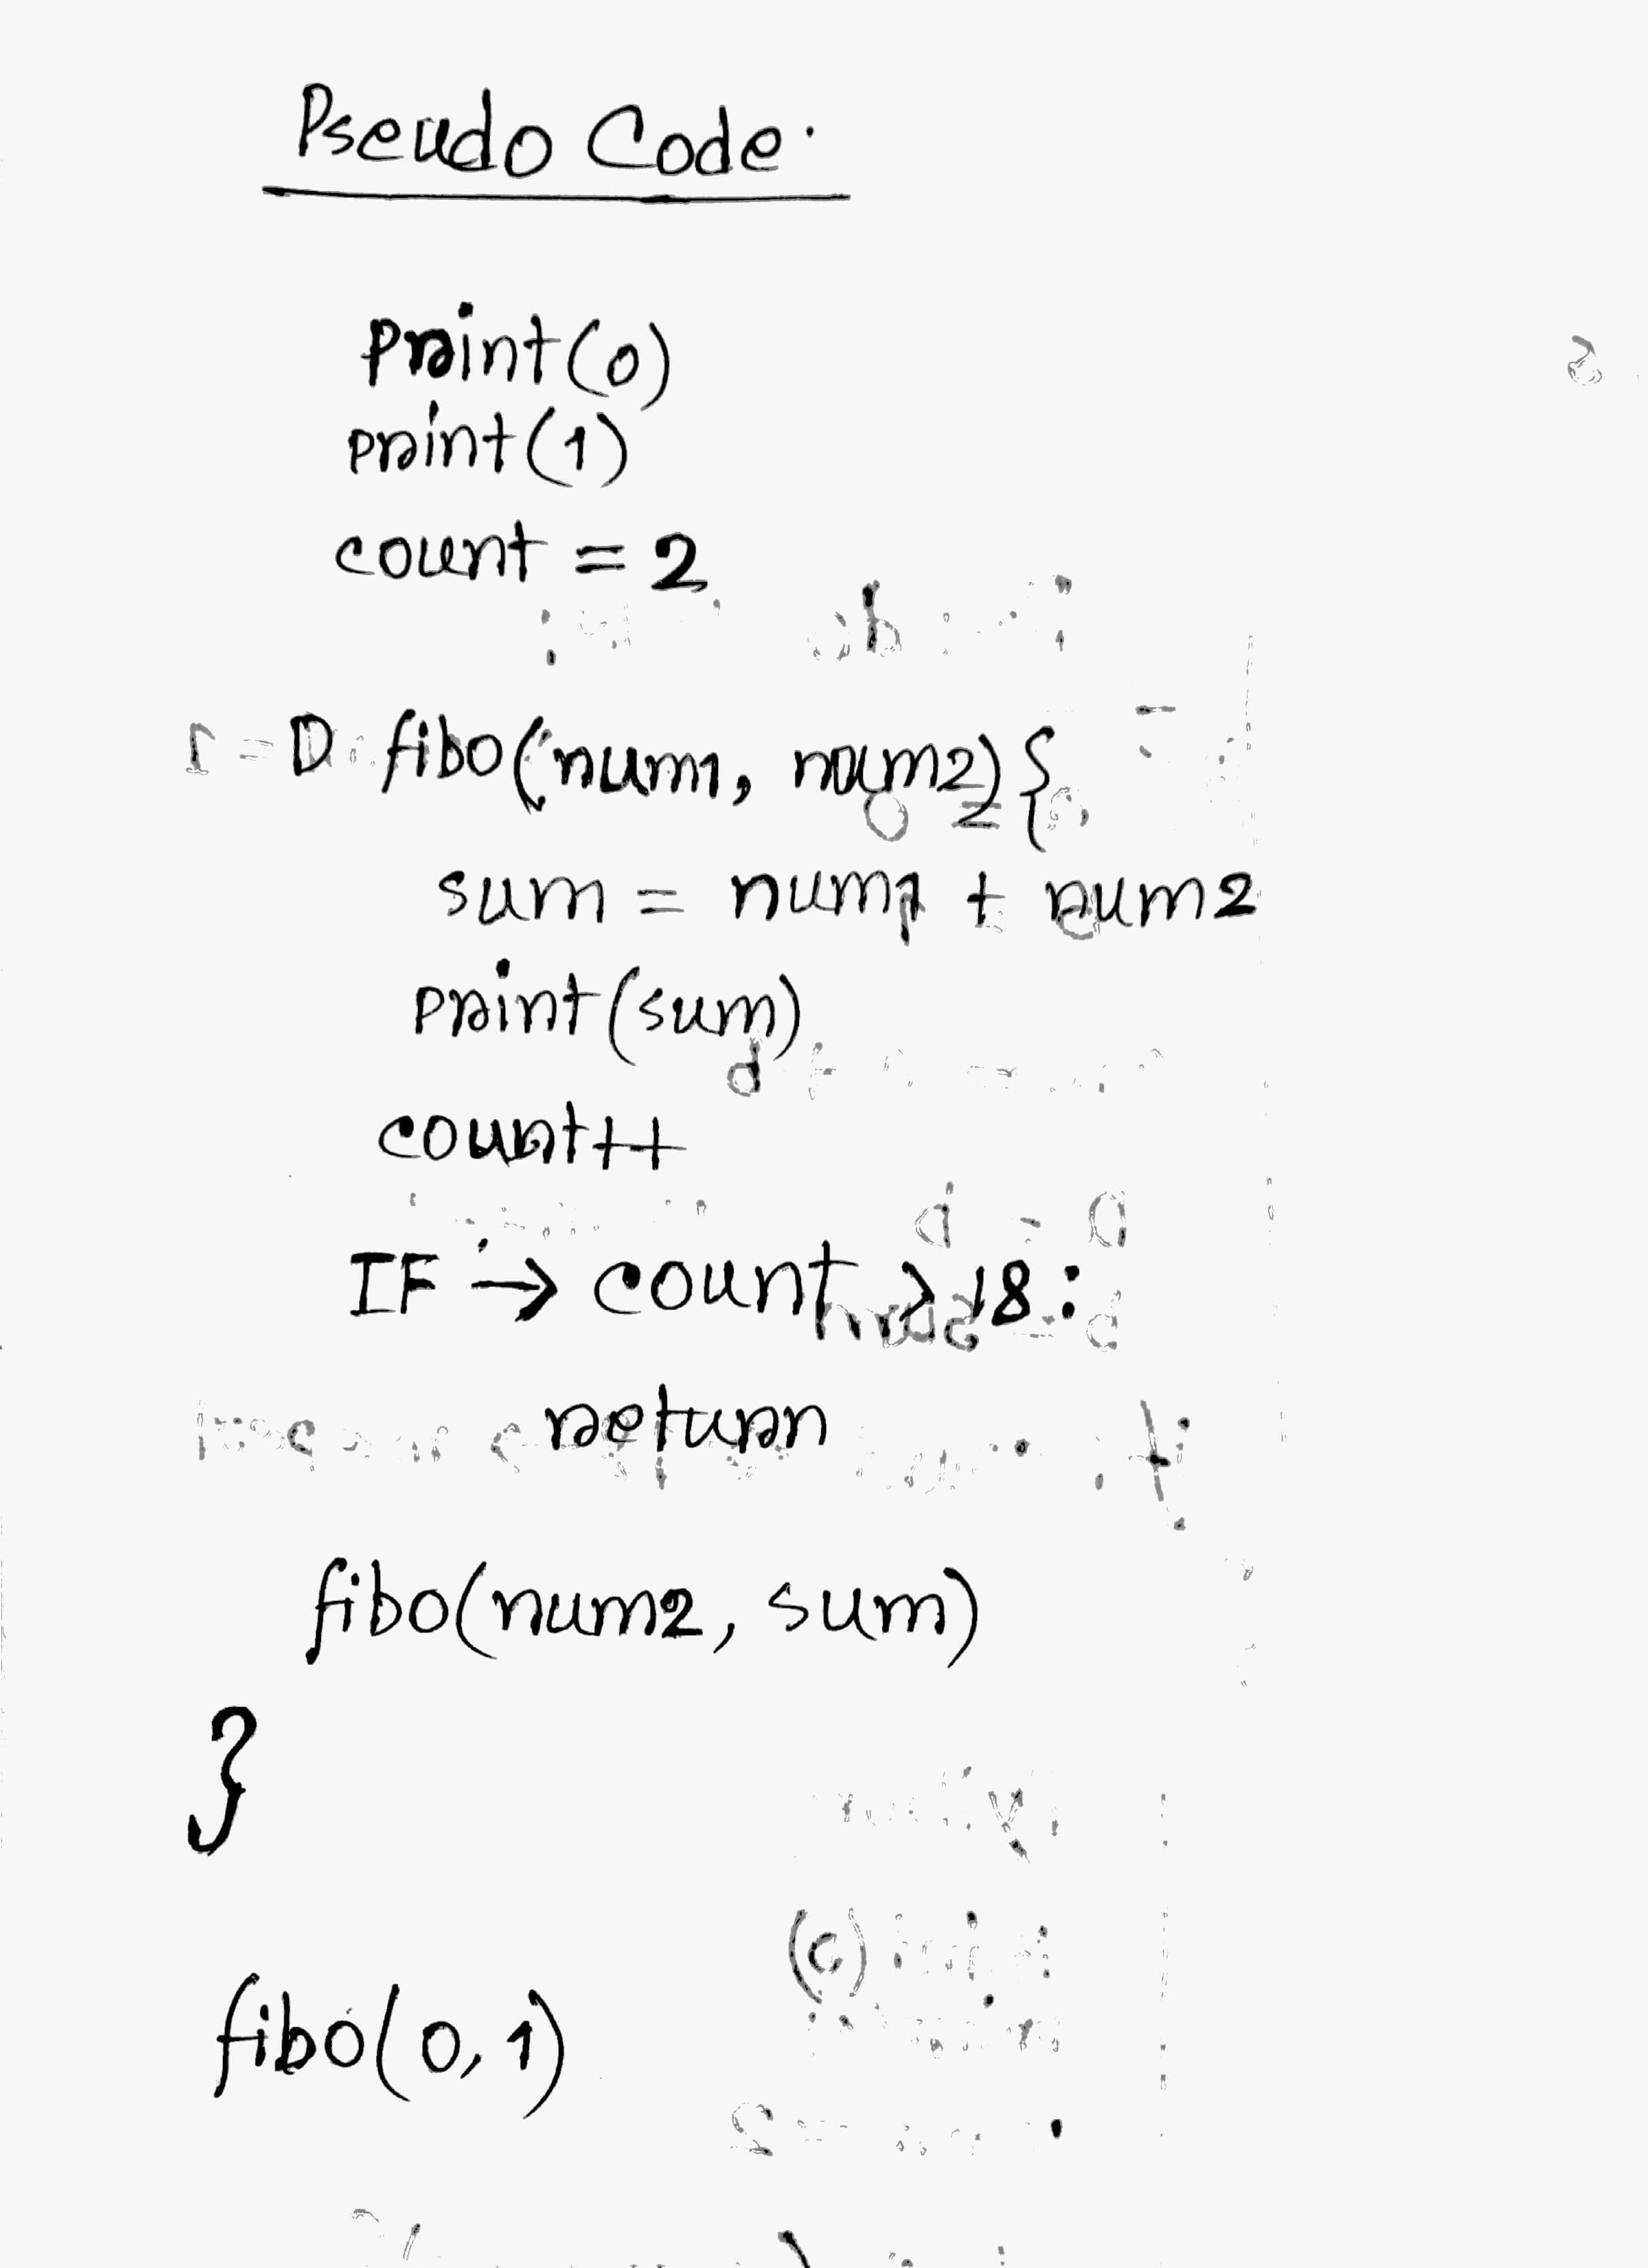 Pseudo Code:
print(0)
print(1)
count = 2
D fibo(num1, num2) {
sum = num1 + num2
print(sum)
count++
IF → count > 18:
return
fibo(num2, sum)
}
fibo(0, 1)